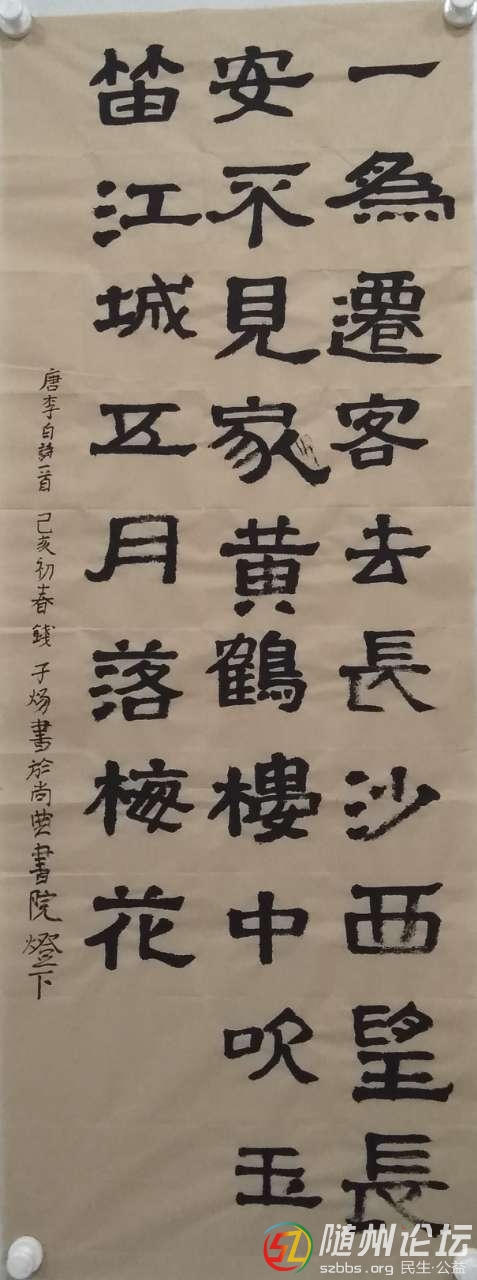 一為遷客去長沙西望長
安不見家黃鶴樓中吹玉
笛江城五月落梅花
唐李白詩一首 己亥初春 錢子炀書於尚典書院燈下
随州论坛
szbbs.org 民生·公益